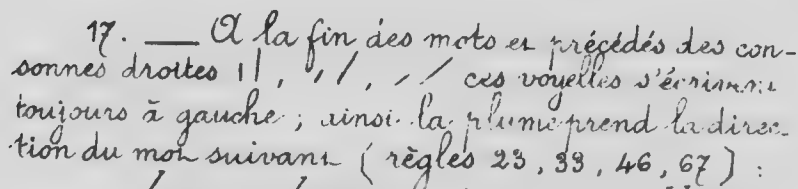 17. — A la fin des mots et précédés des con-
sonnes droites | |, / /, / / ces voyelles s'écrivent
toujours à gauche ; ainsi la plume prend la direc-
tion du mot suivant (règles 23, 39, 46, 67) :